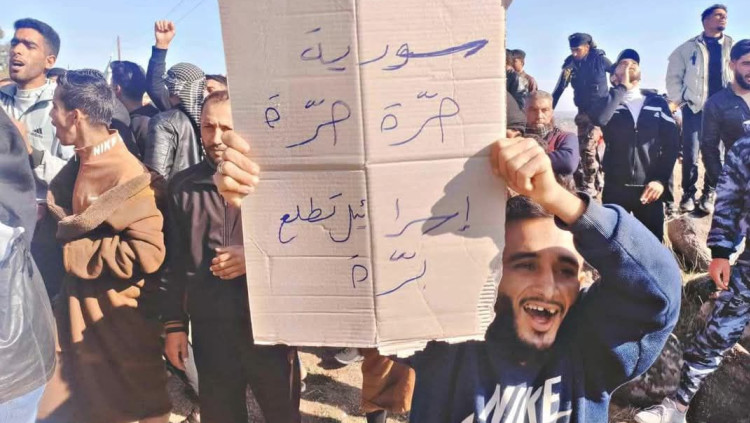 سورية
حرّة حرّة
إسرائيل تطلع
برّة
NIKE
NIKE